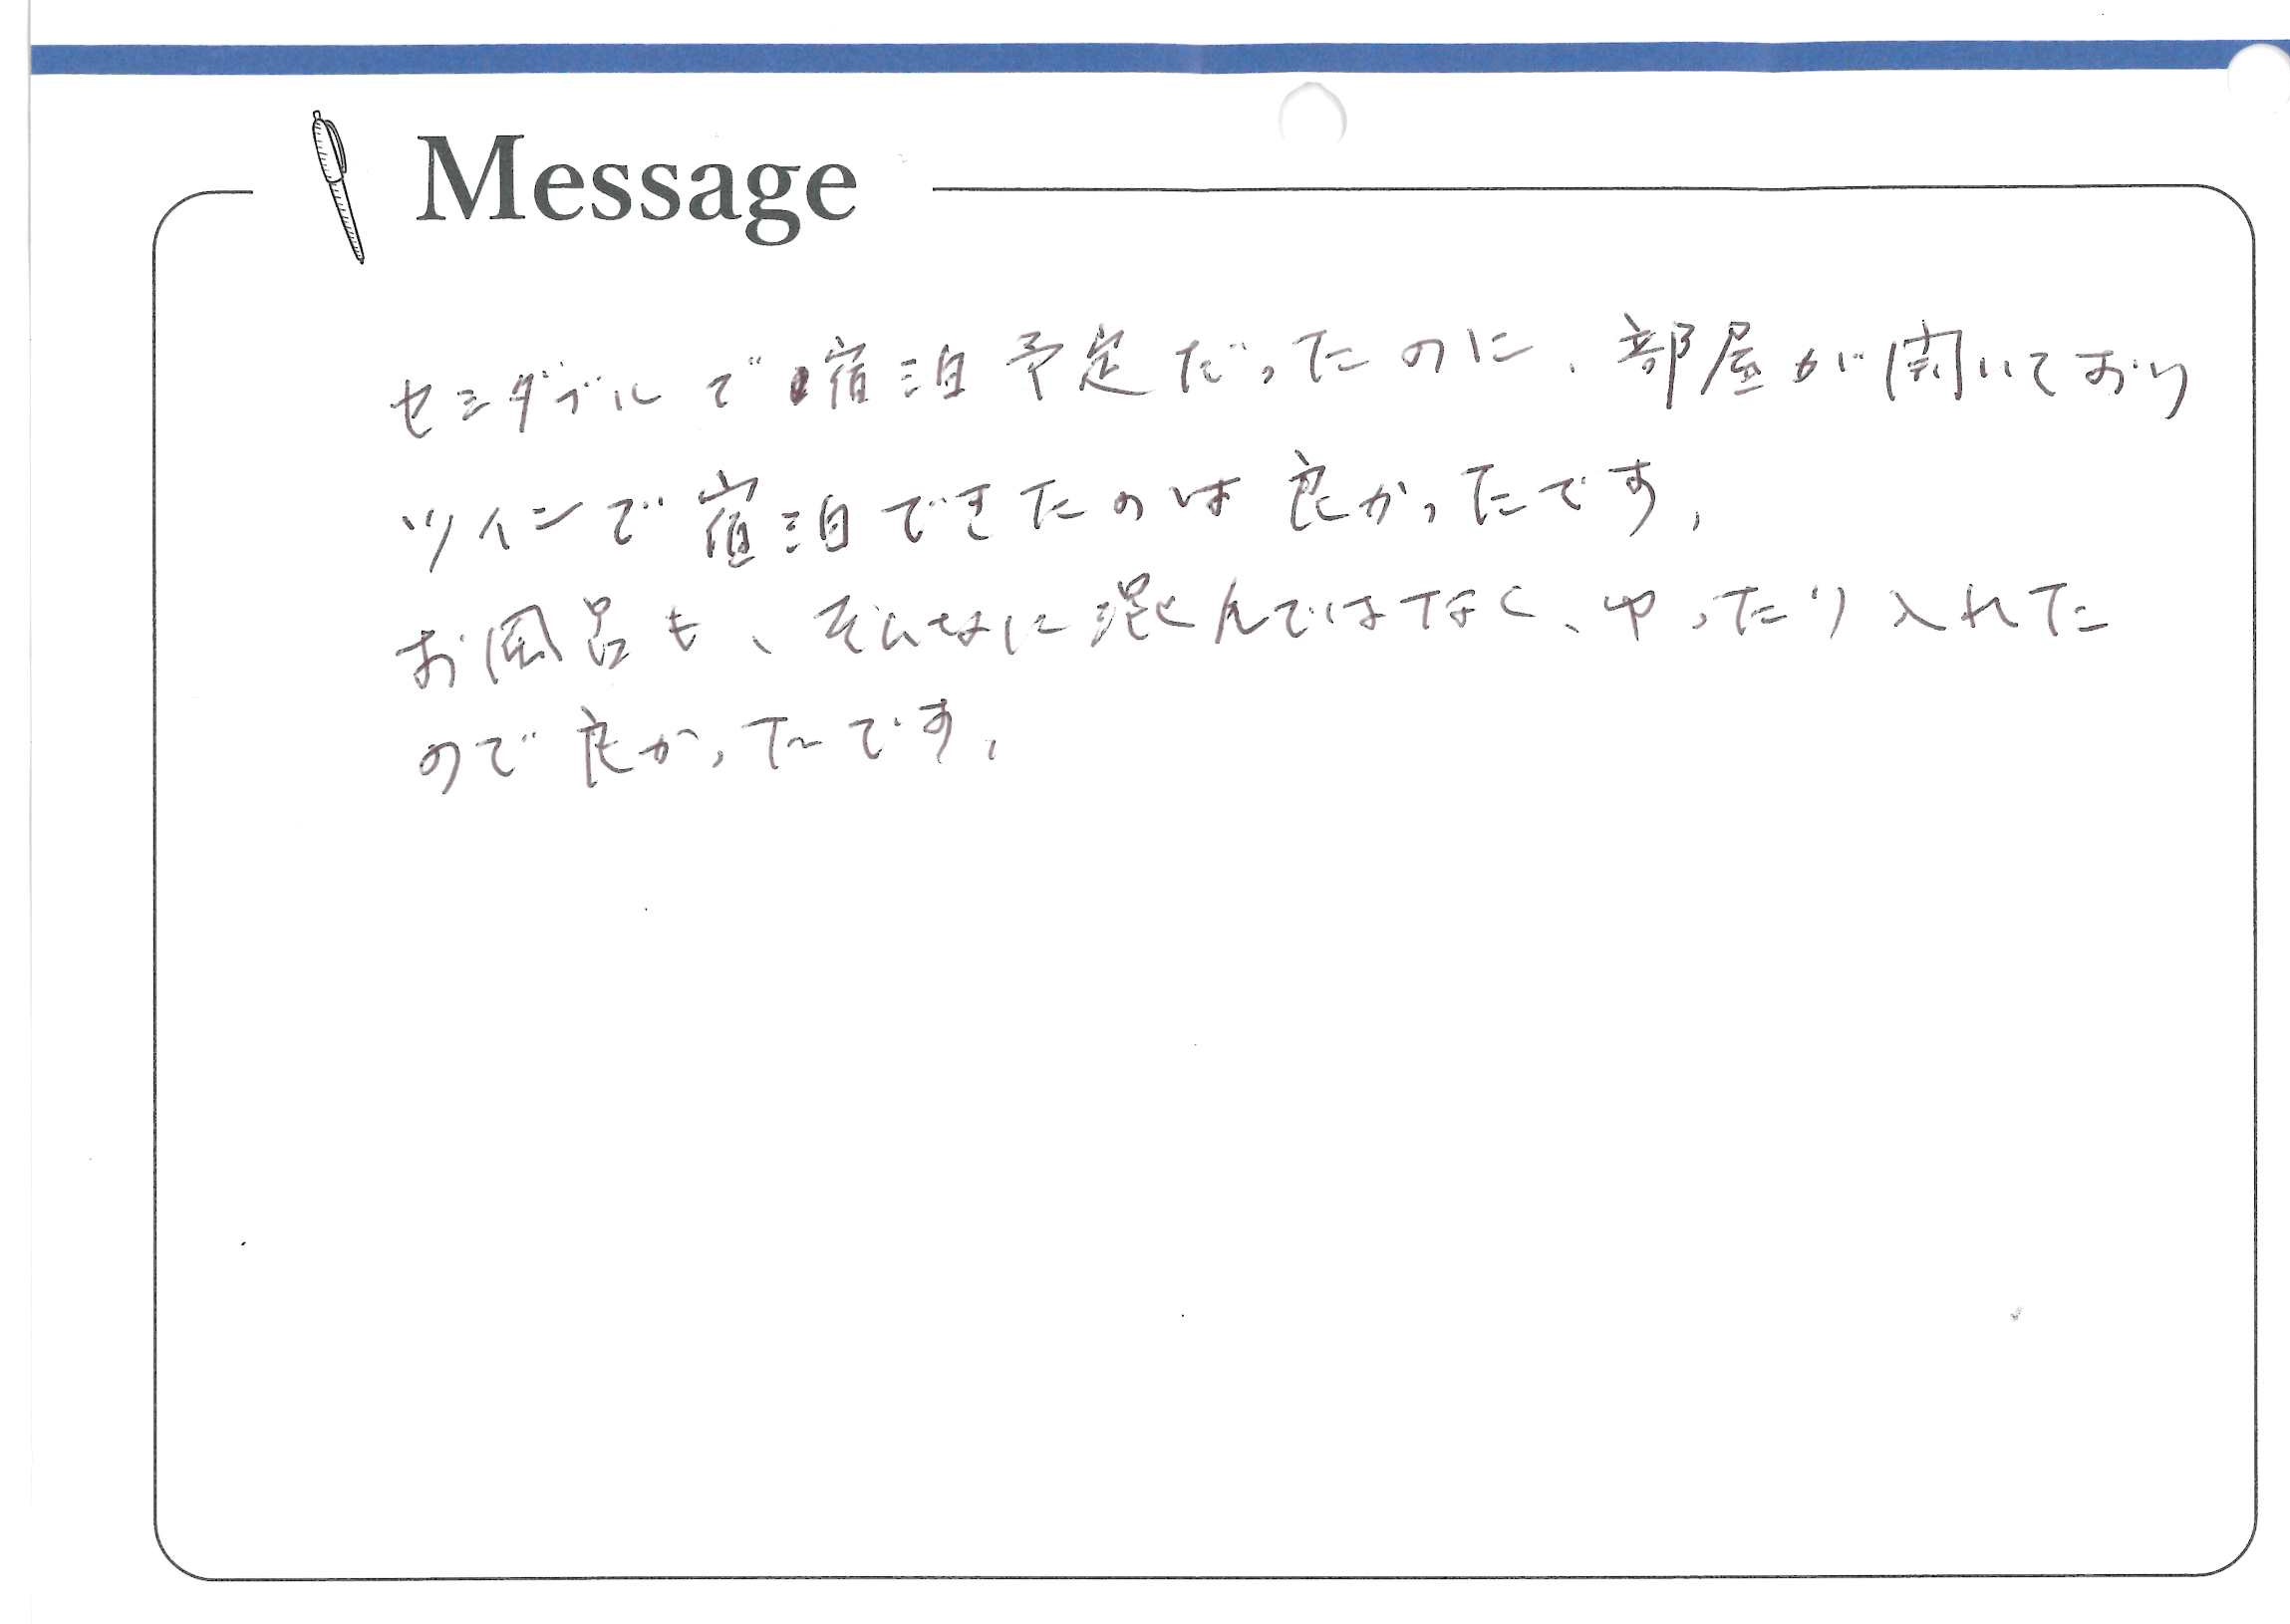 Message
セミダブルで宿泊予定だったのに、部屋が開いており
ツインで宿泊できたのは良かったです。
お風呂も、そんなに混んではなく、ゆったり入れた
ので良かったです。